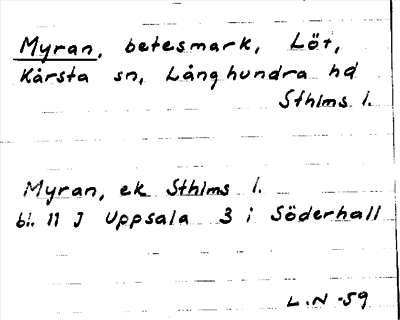 Myran, betesmark, Löt,
Kårsta sn, Långhundra hd
Sthlms l.
Myran, ek Sthlms l.
bl. 11 J Uppsala 3 i Söderhall
L.N -59